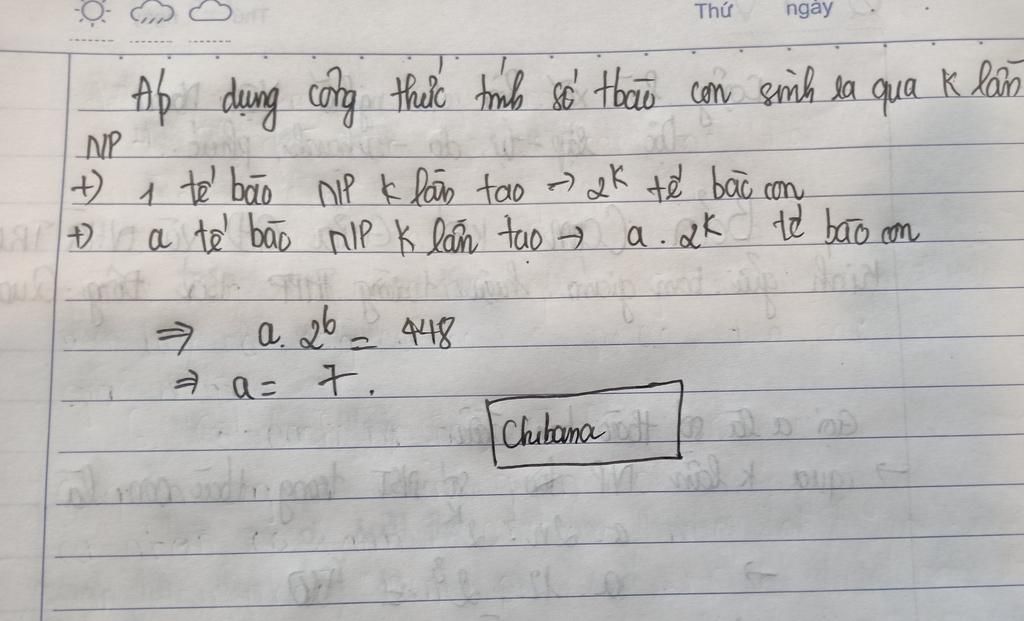 Thứ ngày
Áp dụng công thức tính số tbào con sinh ra qua K lần
NP
+) 1 tế bào NP K lần tạo → 2^K tế bào con
+) a tế bào NP K lần tạo → a. 2^K tế bào con
⇒ a. 2^6 = 448
⇒ a = 7.
Chibana